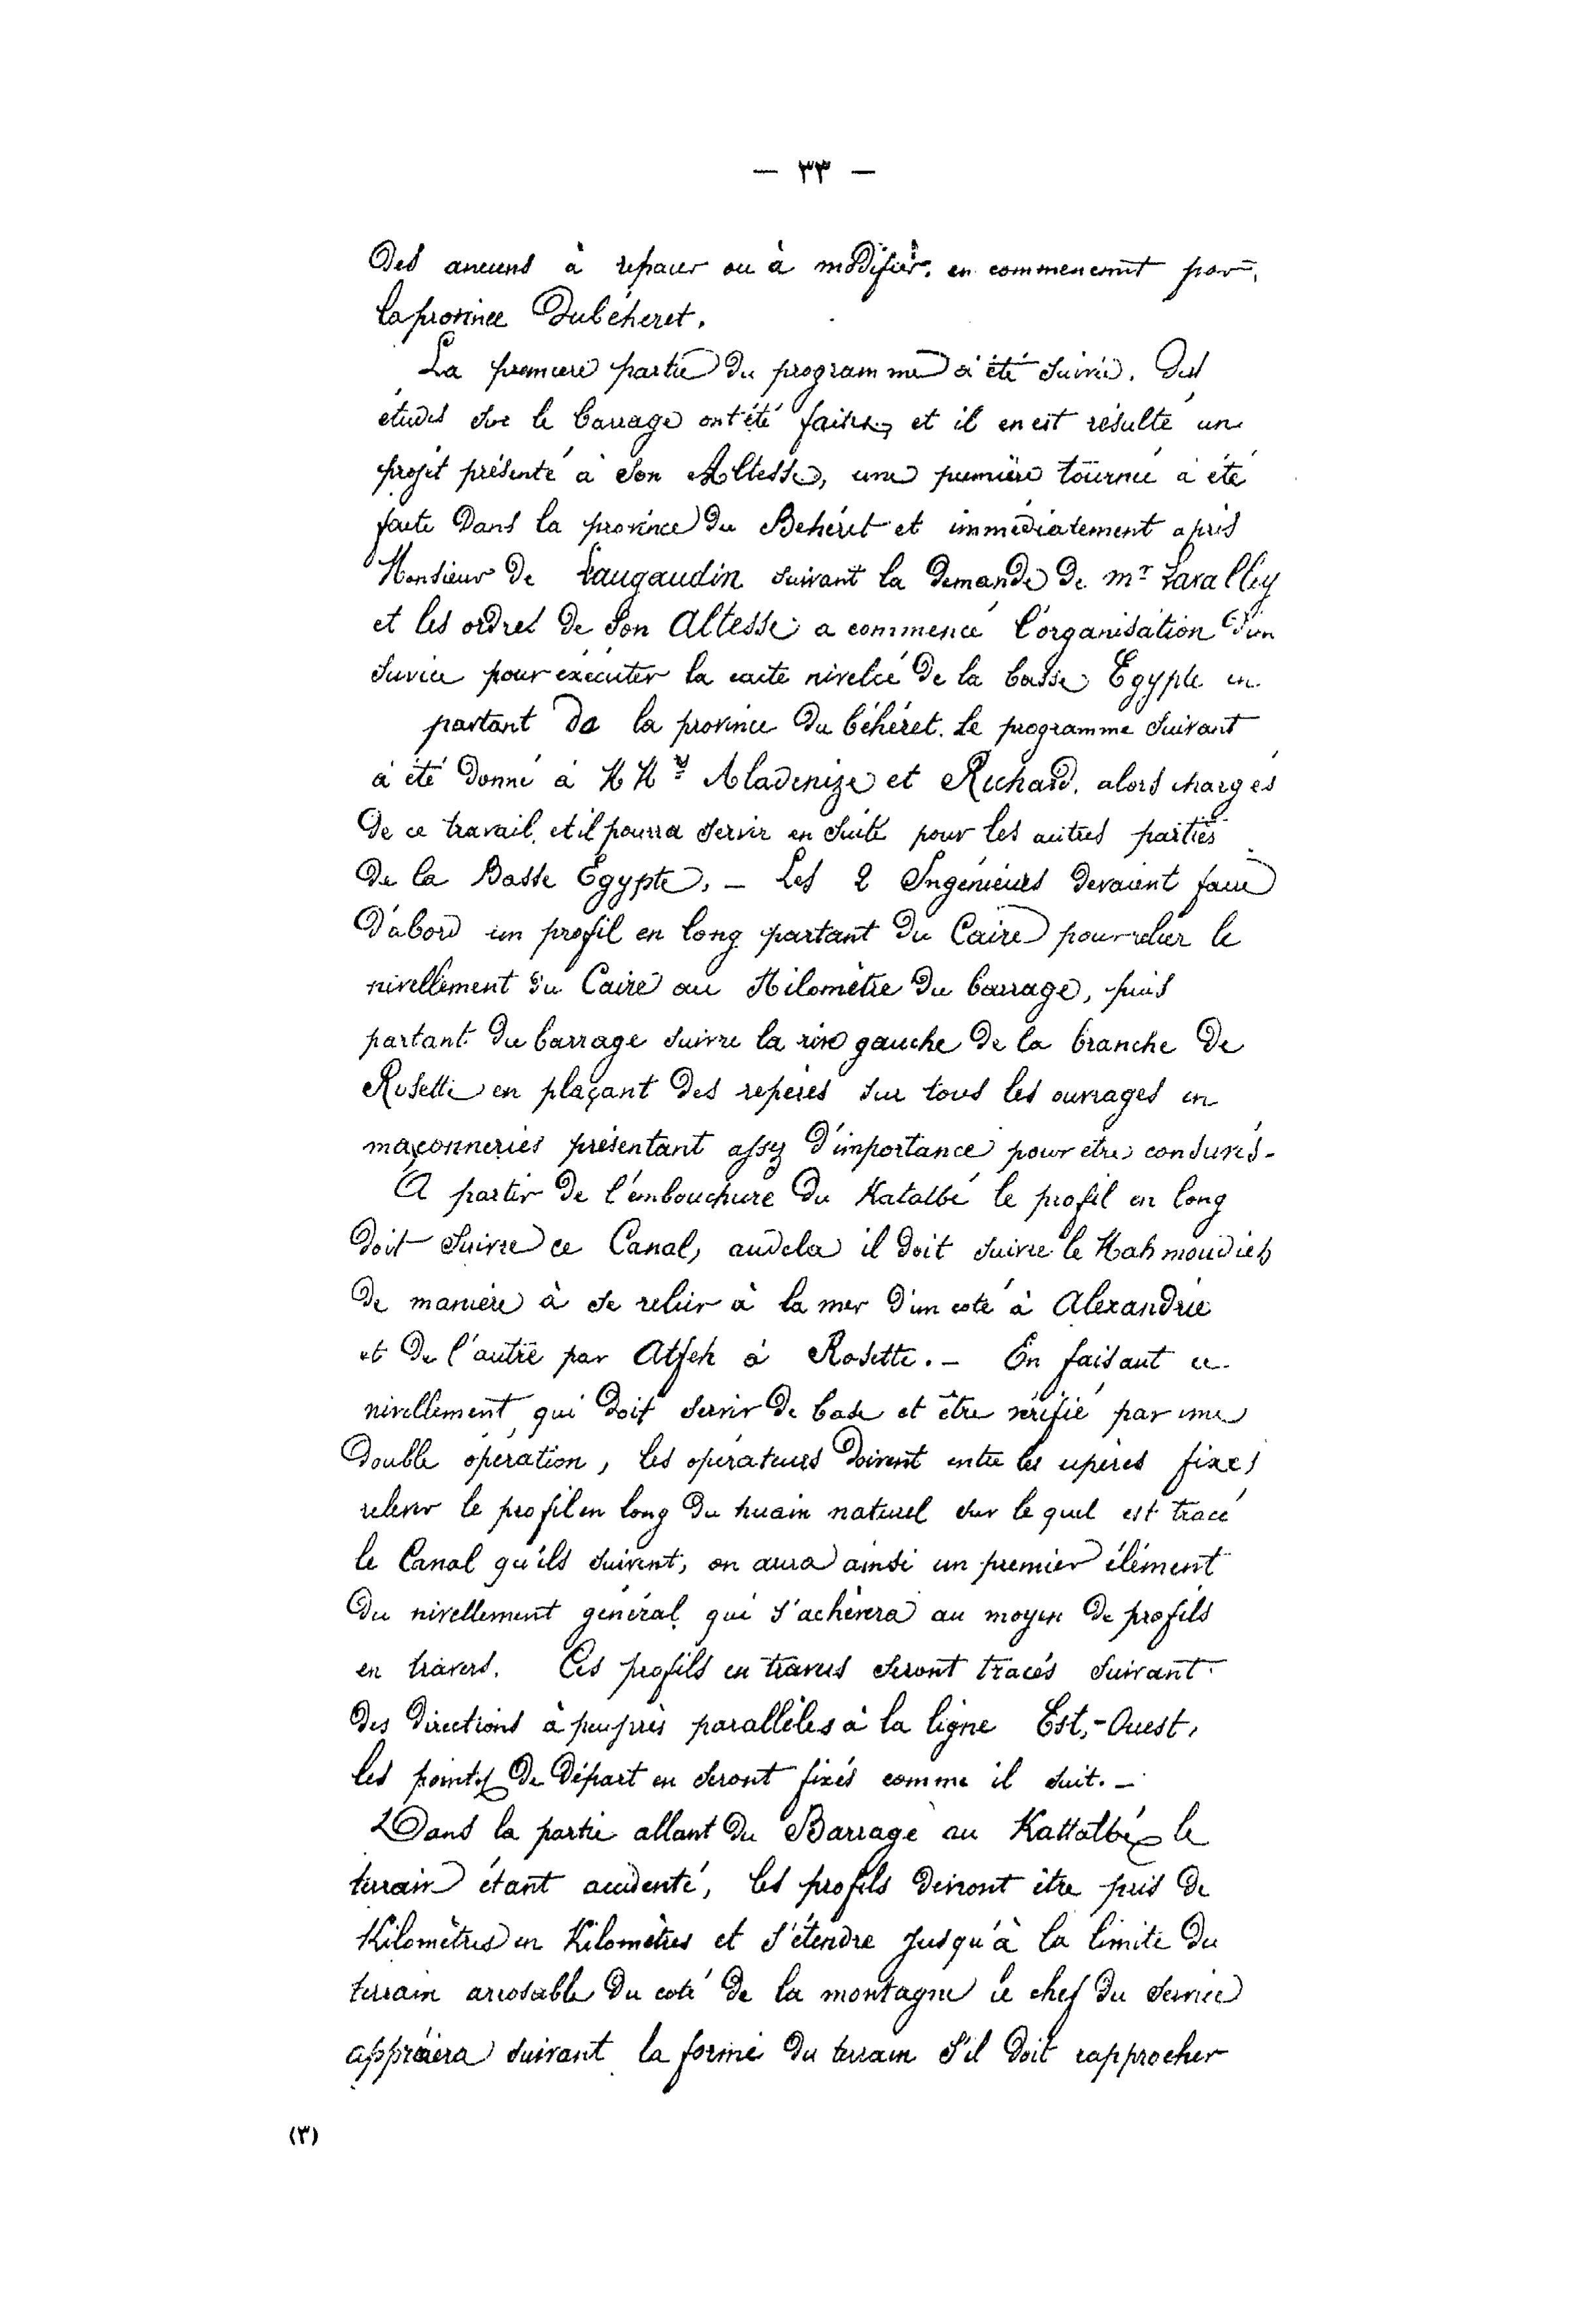 — ٣٣ —
Des anciens à reparer ou à modifier. en commencant par
la province Dubéheret.
La premiere partie du programme a été suivie. Des
études sur le barrage ont été faites, et il en est résulté un
projet présenté à Son Altesse, une première tournée a été
faite Dans la province du Béhéret et immédiatement après
Monsieur De Laugaudin suivant la demande de mr Lavalley
et les ordres de Son Altesse a commencé l'organisation d'un
service pour exécuter la carte nivelée de la basse Egypte en
partant de la province du béhéret. Le programme suivant
a été donné à MMrs Aladenize et Richard. alors chargés
De ce travail, et il pourra servir en suite pour les autres parties
De la Basse Egypte. — Les 2 Ingénieurs devaient faire
D'abord un profil en long partant du Caire pour relier le
nivellement du Caire au Nilomètre du barrage, puis
partant du barrage suivre la rive gauche de la branche de
Rosette en plaçant des repères sur tous les ouvrages en
maçonneries présentant assez d'importance pour être
A partir de l'embouchure du Katatbé le profil en long
doit suivre ce Canal, audela il doit suivre le Mahmoudieh
de manière à se relier à la mer d'un coté à Alexandrie
et de l'autre par Atfeh à Rosette. — En faisant ce
nivellement qui doit servir de base et être vérifié par une
double opération, les opérateurs doivent entre les repères fixes
relever le profil en long du terrain naturel sur le quel est tracé
le Canal qu'ils suivent, on aura ainsi un premier élément
du nivellement général qui s'achèvera au moyen de profils
en travers. Ces profils en travers seront tracés suivant
des directions à peu près parallèles à la ligne Est,-Ouest,
les points de départ en seront fixés comme il suit. —
Dans la partie allant du Barrage au Kattatbé le
terrain étant accidenté, les profils devront être pris de
Kilomètres en Kilomètres et s'étendre jusqu'à la limite du
terrain arrosable du coté de la montagne le chef du service
appréciera suivant la forme du terrain s'il doit rapprocher
(٣)